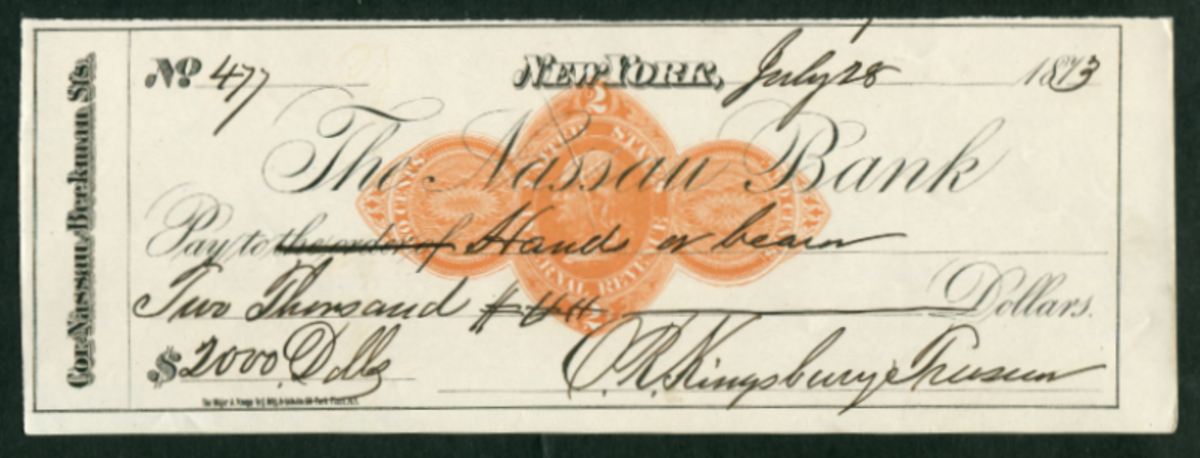 Cor. Nassau & Beekman Sts.
No. 477 New York, July 28 1873
The Nassau Bank
Pay to the order of Hand or bearer
Two Thousand Dollars.
$ 2000 Dolls
O.R. Kingsbury Treasurer
2
UNITED STATES
INTERNAL REVENUE
TWO CENTS
2